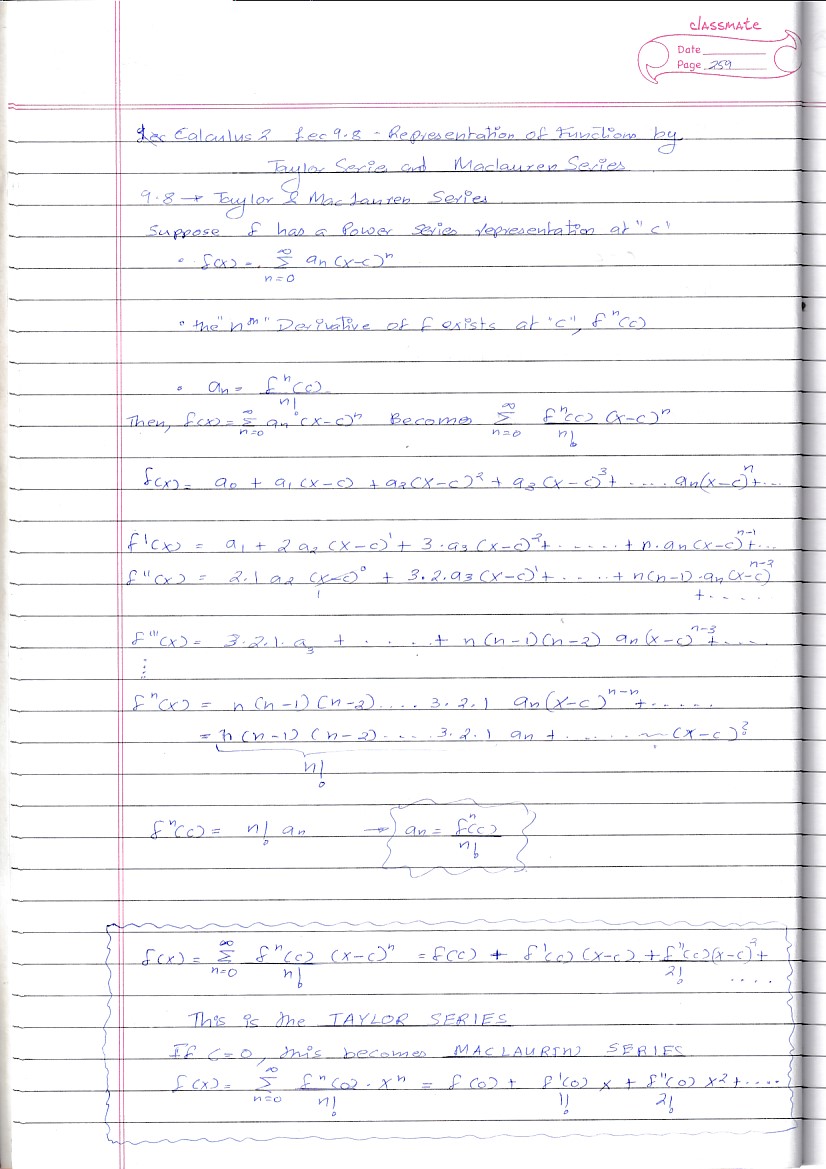 classmate
Date
Page 259
Lec Calculus 2 Lec 9.8 - Representation of Functions by
Taylor Serie and Maclauren Series
9.8 → Taylor & MacLauren Series
Suppose f has a Power series representation at "c"
• f(x) = ∞Σn=0 an (x-c)^n
• the "nth" Derivative of f exists at "c", f^n(c)
• an = f^n(c) / n!
Then, f(x) = ∞Σn=0 an (x-c)^n Becomes ∞Σn=0 f^n(c)/n! (x-c)^n
f(x) = a0 + a1(x-c) + a2(x-c)^2 + a3(x-c)^3 + .... an(x-c)^n + ...
f'(x) = a1 + 2a2(x-c)^1 + 3·a3(x-c)^2 + ...... + n·an(x-c)^n-1 + ...
f''(x) = 2.1 a2 (x-c)^0 + 3.2.a3(x-c)^1 + ..... + n(n-1)·an(x-c)^n-2
+ ....
f'''(x) = 3.2.1. a3 + ..... + n(n-1)(n-2) an(x-c)^n-3 + ....
⋮
f^n(x) = n(n-1)(n-2).... 3.2.1 an(x-c)^n-n + ......
= n(n-1)(n-2).... 3.2.1 an + ...... ~ (x-c)^?
n!
f^n(c) = n! an → {an = f^n(c)/n!}
f(x) = ∞Σn=0 f^n(c)/n! (x-c)^n = f(c) + f'(c)(x-c) + f''(c)/2! (x-c)^2 + ....
This is the TAYLOR SERIES
If C=0, this becomes MACLAURIN SERIES
f(x) = ∞Σn=0 f^n(0)/n! · x^n = f(0) + f'(0)/1! x + f''(0)/2! x^2 + ....